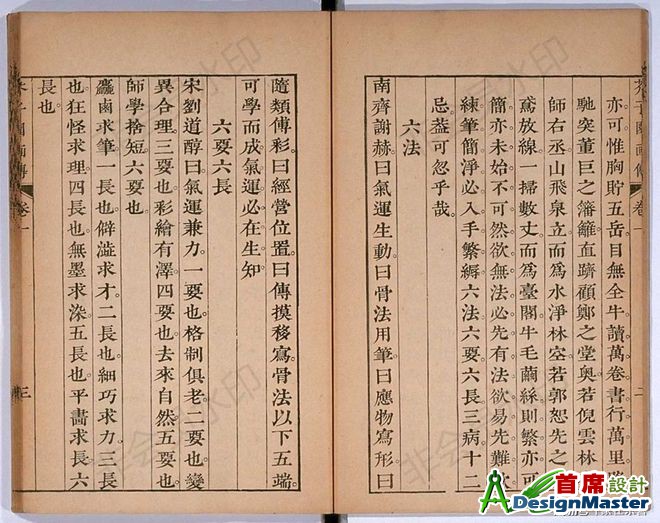 芥子園畫傳 卷一 二
亦可。惟胸貯五岳。目無全牛。讀萬卷書。行萬里
馳突董巨之籓籬。直躋顧鄭之堂奧。若倪雲林
師右丞。山飛泉立。而爲水淨林空。若郭恕先之
鳶放線。一掃數丈。而爲臺閣。牛毛繭絲。則繁亦可
簡亦未始不可。然欲無法必先有法。欲易先難。欲
練筆簡淨。必入手繁縟。六法六要六長三病十二
忌。葢可忽乎哉。
六法
南齊謝赫曰氣運生動曰骨法用筆曰應物寫形曰
隨類傅彩曰經營位置曰傳摸移寫骨法以下五端。
可學而成。氣運必在生知
六要六長
宋劉道醇曰氣運兼力。一要也。格制俱老。二要也。變
異合理。三要也。彩繪有澤。四要也。去來自然。五要也。
師學捨短。六要也。
麤鹵求筆。一長也。僻澁求才。二長也。細巧求力。三長
也。狂怪求理。四長也。無墨求染。五長也。平畵求長。六
長也。
芥子園畫傳 卷一 三
非会员水印
首席設計
ADesignMaster